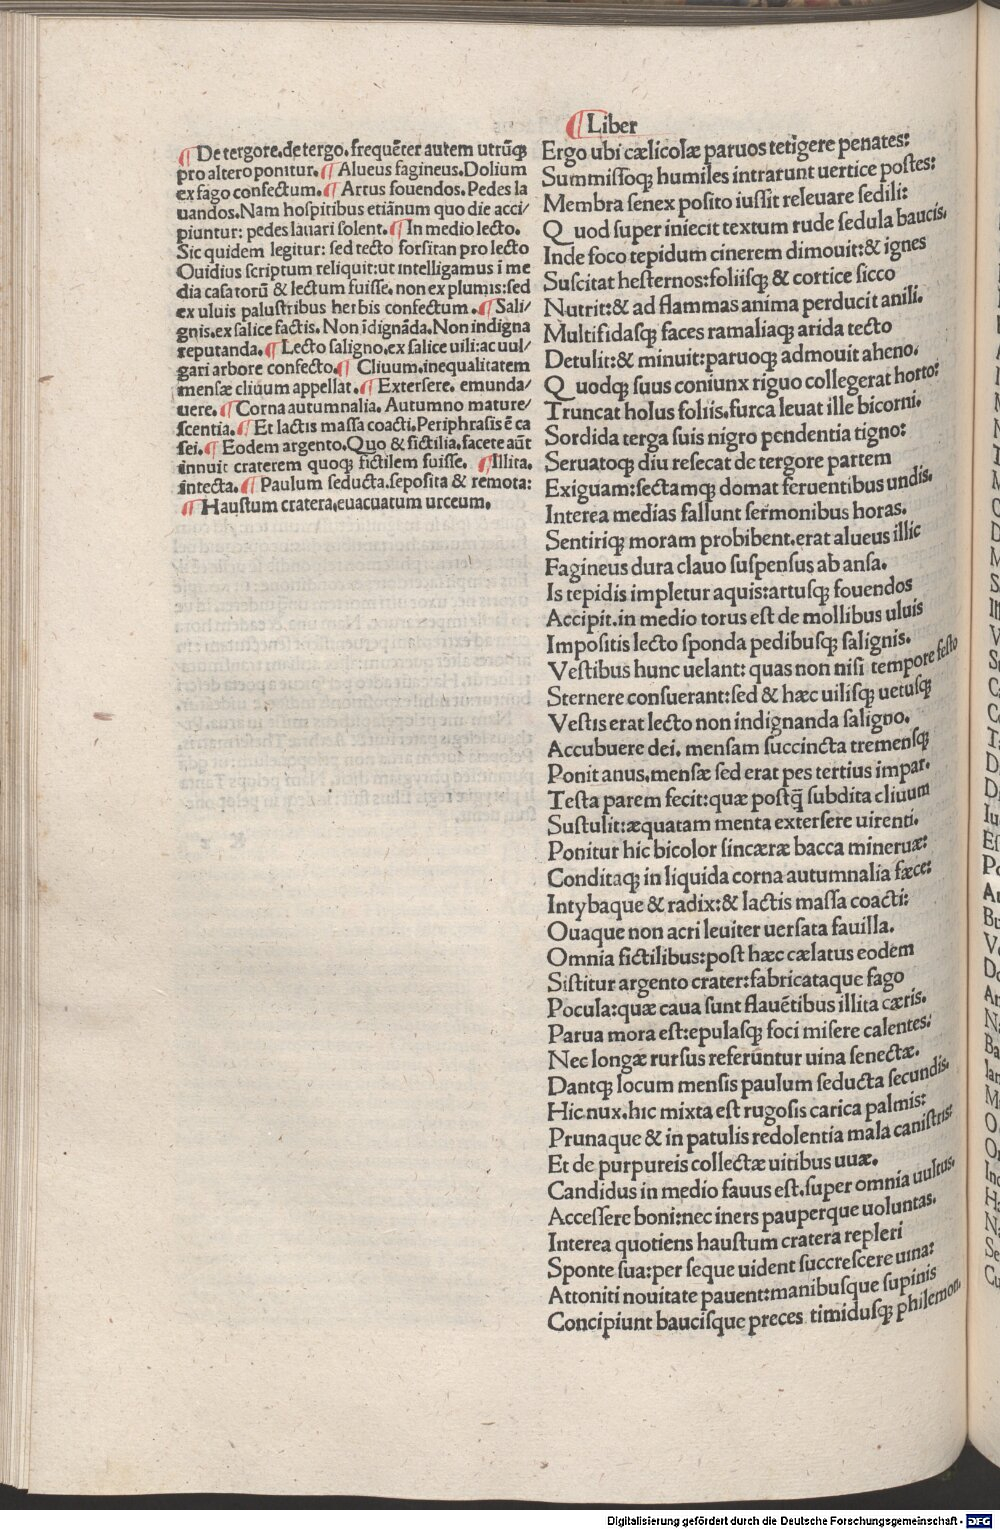 ¶Liber
¶De tergore.de tergo.frequēter autem utrūqꝫ
pro altero ponitur.¶Alueus fagineus.Dolium
ex fago confectum.¶Artus fouendos.Pedes la
uandos.Nam hospitibus etiānum quo die acci/
piuntur: pedes lauari solent.¶In medio lecto.
Sic quidem legitur: sed tecto forsitan pro lecto
Ouidius scriptum reliquit:ut intelligamus ī me
dia casa torū & lectum fuisse.non ex plumis:sed
ex uluis palustribus herbis confectum.¶Sali/
gnis.ex salice factis.Non īdignāda.Non indigna
reputanda.¶Lecto saligno.ex salice uili:ac uul/
gari arbore confecto.¶Cliuum.inequalitatem
mensæ cliuum appellat.¶Extersere. emunda/
uere.¶Corna autumnalia. Autumno mature/
scentia.¶Et lactis massa coacti.Periphrasis ē ca
sei.¶Eodem argento.Quo & fictilia.facete aūt
innuit craterem quoqꝫ fictilem fuisse. ¶Illita.
intecta.¶Paulum seducta.seposita & remota:
¶Haustum cratera.euacuatum urceum.
Ergo ubi cælicolæ paruos tetigere penates:
Summissoqꝫ humiles intrarunt uertice postes:
Membra senex posito iussit releuare sedili:
Q uod super iniecit textum rude sedula baucis.
Inde foco tepidum cinerem dimouit:& ignes
Suscitat hesternos:foliisqꝫ & cortice sicco
Nutrit:& ad flammas anima perducit anili.
Multifidasqꝫ faces ramaliaqꝫ arida tecto
Detulit:& minuit:paruoqꝫ admouit aheno.
Q uodqꝫ suus coniunx riguo collegerat horto:
Truncat holus foliis.furca leuat ille bicorni.
Sordida terga suis nigro pendentia tigno:
Seruatoqꝫ diu resecat de tergore partem
Exiguam:sectamqꝫ domat feruentibus undis.
Interea medias fallunt sermonibus horas.
Sentiriqꝫ moram probibent.erat alueus illic
Fagineus dura clauo suspensus ab ansa.
Is tepidis impletur aquis:artusqꝫ fouendos
Accipit.in medio torus est de mollibus uluis
Impositis lecto sponda pedibusqꝫ salignis.
Vestibus hunc uelant: quas non nisi tempore festo
Sternere consuerant:sed & hæc uilisqꝫ uetusqꝫ
Vestis erat lecto non indignanda saligno.
Accubuere dei. mensam succincta tremensqꝫ
Ponit anus.mensæ sed erat pes tertius impar.
Testa parem fecit:quæ postq̄ subdita cliuum
Sustulit:æquatam menta extersere uirenti.
Ponitur hic bicolor sincæræ bacca mineruæ:
Conditaqꝫ in liquida corna autumnalia fæce:
Intybaque & radix:& lactis massa coacti:
Ouaque non acri leuiter uersata fauilla.
Omnia fictilibus:post hæc cælatus eodem
Sistitur argento crater:fabricataque fago
Pocula:quæ caua sunt flauētibus illita cæris.
Parua mora est:epulasqꝫ foci misere calentes:
Nec longæ rursus referuntur uina senectæ.
Dantqꝫ locum mensis paulum seducta secundis.
Hic nux.hic mixta est rugosis carica palmis:
Prunaque & in patulis redolentia mala canistris:
Et de purpureis collectæ uitibus uuæ.
Candidus in medio fauus est.super omnia uultus.
Accessere boni:nec iners pauperque uoluntas.
Interea quotiens haustum cratera repleri
Sponte sua:per seque uident succrescere uina:
Attoniti nouitate pauent:manibusque supinis
Concipiunt baucisque preces timidusqꝫ philemon.
Digitalisierung gefördert durch die Deutsche Forschungsgemeinschaft - DFG